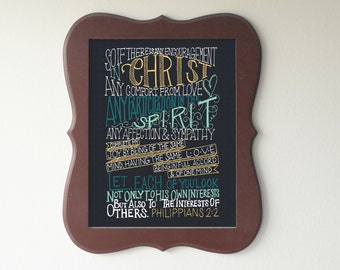 SO IF THERE IS ANY ENCOURAGEMENT
IN CHRIST
ANY COMFORT FROM LOVE
ANY PARTICIPATION IN THE
SPIRIT
ANY AFFECTION & SYMPATHY
COMPLETE MY
JOY BY BEING OF THE SAME
MIND, HAVING THE SAME LOVE
BEING IN FULL ACCORD
& OF ONE MIND.
LET EACH OF YOU LOOK
NOT ONLY TO HIS OWN INTERESTS
BUT ALSO TO THE INTERESTS OF
OTHERS. PHILIPPIANS 2:2